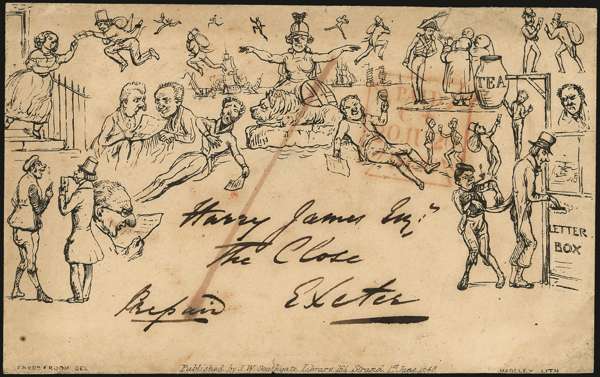 TEA
Harry James Esqr
LETTER
The Close
BOX
Prepaid Exeter
DEL
Published by J.W. Southgate, Library, 164 Strand. 1st June 1840
MADELEY LITH